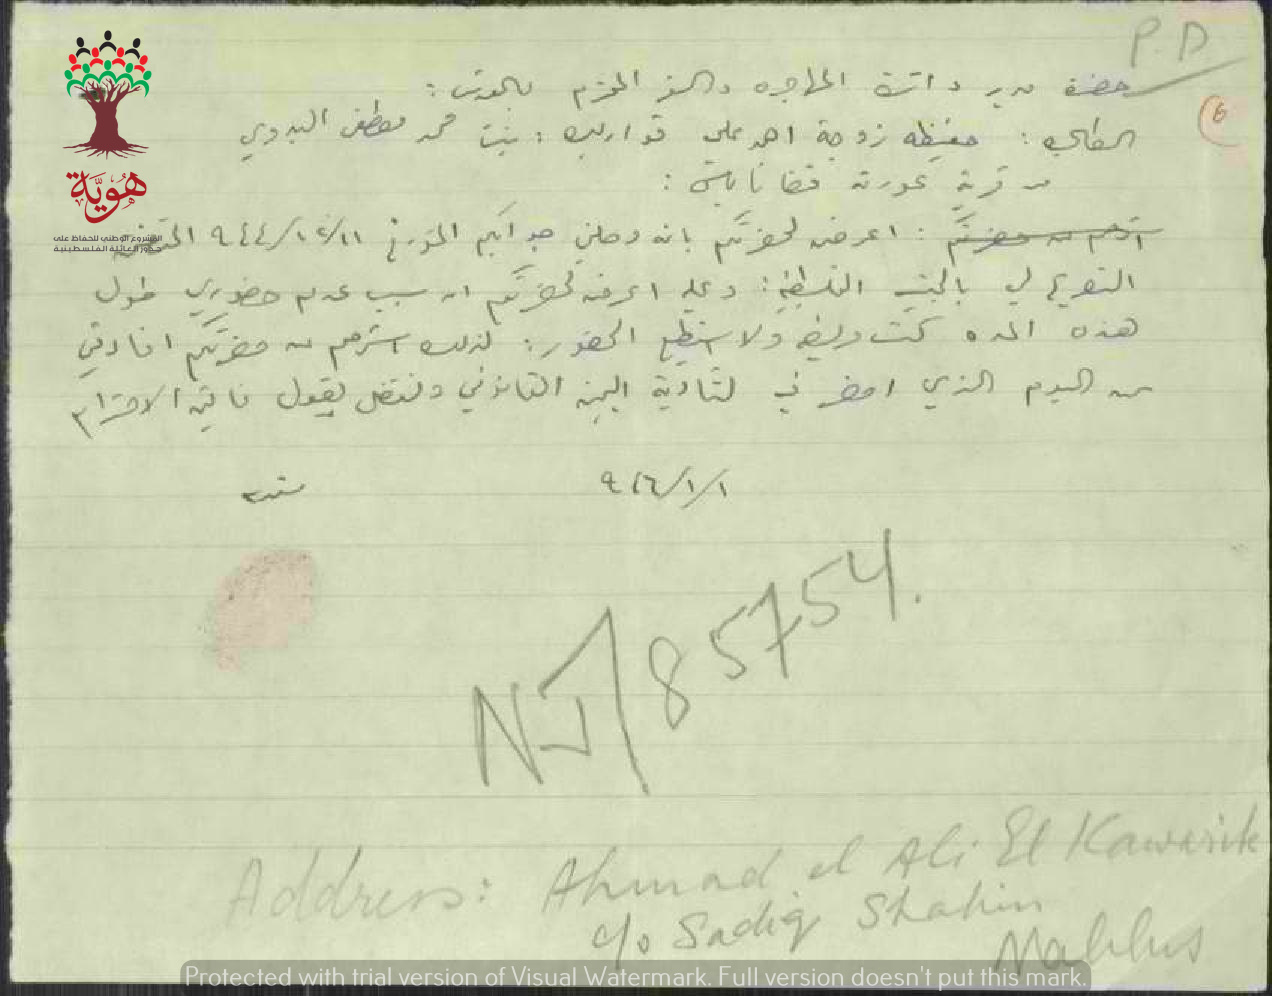 P.D
حضرة مدير دائرة المهاجره والسفر المحترم بالقدس :
6
الطالب : حفيظه زوجة احمد علي قواريك : بنت محمد مصطفى البدوي
من قرية عورته قضا نابلس :
استرحم من حضرتكم : اعرض لحضرتكم بانه وصلني جوابكم المؤرخ ١١/١٢/٩٤٤
التصريح لي بالجنسية الفلسطينية : وعليه اعرض لحضرتكم ان سبب عدم حضوري طول
هذه المده كنت مريضه ولا استطيع الحضور : لذلك استرحم من حضرتكم افادتي
عن اليوم الذي احضر فيه لتأدية اليمين القانوني وتفضل بقبول فائق الاحترام
١/١/٩٤٦
NJ/85754.
Address: Ahmad el Ali El Kawarik
c/o Sadiq Shahin
Nablus
هوية
المشروع الوطني للحفاظ على
جذور العائلة الفلسطينية
Protected with trial version of Visual Watermark. Full version doesn't put this mark.